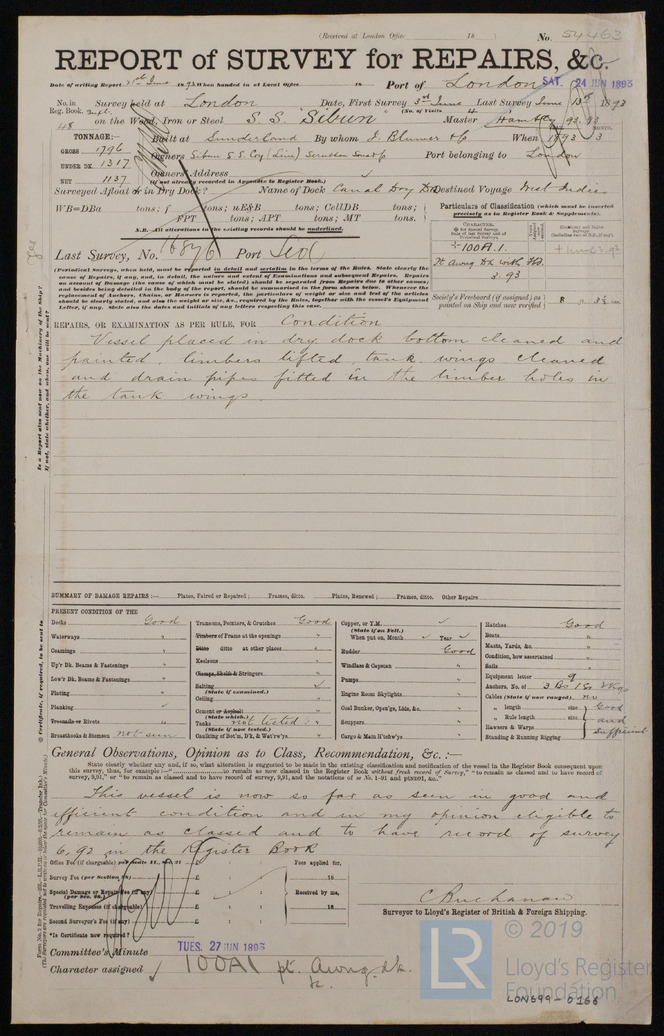 (Received at London Office 18 )
No. 54463
REPORT of SURVEY for REPAIRS, &c.
Date of writing Report 21st June 1893 When handed in at Local Office 18 Port of London SAT. 24 JUN 1893
No. in Reg. Book. Survey held at London Date, First Survey 3rd June Last Survey June 13th 1893
48 on the Wood, Iron or Steel S.S. "Sibun" (No. of Visits 4) Master
TONNAGE:— Built at Sunderland By whom J. Blumer & Co When 1893 3
GROSS 1796 Owners Sibun S.S. Coy (Lim) Port belonging to London
UNDER DK. 1317 Owners' Address
NET 1137 (if not already recorded in Appendix to Register Book.)
Surveyed Afloat or in Dry Dock? Name of Dock Canal Dry Dk Destined Voyage West Indies
WB=DBa tons; f tons; uE&B tons; CellDB tons;
FPT tons; APT tons; MT tons.
N.B. All alterations in the existing records should be underlined.
Last Survey, No. 16876 Port
Particulars of Classification (which must be inserted precisely as in Register Book & Supplements).
+100A.1.
Pt Awng Dk with Fb.
3.93
Society's Freeboard (if assigned) as painted on Ship and now verified
(Periodical Surveys, when held, must be reported in detail and seriatim in the terms of the Rules. State clearly the cause of Repairs, if any, and, in detail, the nature and extent of Examinations and subsequent Repairs. Repairs on account of Damage (the cause of which must be stated) should be separated from Repairs due to other causes; and besides being detailed in the body of the report, should be summarised in the form shewn below. Whenever a replacement of Anchors, Chains, or Hawsers is reported, the particulars of weight or size and test of the articles should be clearly stated, and also the dates and initials of any letters respecting this case.
REPAIRS, OR EXAMINATION AS PER RULE, FOR Condition
Vessel placed in dry dock bottom cleaned and
painted. limbers lifted, tank wings cleaned
and drain pipes fitted in the limber holes in
the tank wings.
SUMMARY OF DAMAGE REPAIRS:— Plates, Faired or Repaired; Frames, ditto. Plates, Renewed; Frames, ditto. Other Repairs
PRESENT CONDITION OF THE
Decks Good
Waterways "
Coamings "
Up'r Dk. Beams & Fastenings "
Low'r Dk. Beams & Fastenings "
Plating "
Planking
Treenails or Rivets "
Breasthooks & Stemson not seen
Transoms, Pointers, & Crutches Good
Timbers of Frame at the openings "
Ditto ditto at other places "
Keelsons "
Clamps, Shelfs & Stringers "
Salting (State if examined.)
Ceiling "
Cement or Asphalt (State which.) "
Tanks (State if now tested.) not tested
Caulking of Bot'm, D'k, & Wat'rw'ys "
Copper, or Y.M. (State if on Felt.)
When put on, Month Year
Rudder Good
Windlass & Capstan "
Pumps "
Engine Room Skylights "
Coal Bunker, Open'gs, Lids, &c. "
Scuppers "
Cargo & Main H'tchw'ys "
Hatches Good
Boats "
Masts, Yards, &c. "
Condition, how ascertained
Sails "
Equipment letter q
Anchors, No. of 3 Bs 1 St 2 Kgs
Cables (State if now ranged) No
" length size Good
" Rule length size and
Hawsers & Warps Sufficient
Standing & Running Rigging
General Observations, Opinion as to Class, Recommendation, &c. :—
State clearly whether any, and if, so, what alteration is suggested to be made in the existing classification and notification of the vessel in the Register Book consequent upon this survey, thus, for example:—"to remain as now classed in the Register Book without fresh record of Survey," "to remain as classed and to have record of survey, 9,91," or "to remain as classed and to have record of survey, 9,91, and the notations of ss No. 1-91 and ptNDB91, &c."
This vessel is now so far as seen in good and
efficient condition and in my opinion eligible to
remain as classed and to have record of survey
6.93 in the Register Book
Office Fee (if chargeable) £ Fees applied for,
Survey Fee (per Section 28) £ 18
Special Damage or Repair Fee (if any) (per Sec. 28.) £ Received by me,
Travelling Expenses (if chargeable) £ 18
Second Surveyor's Fee (if any) £
*Is Certificate now required?
C Buchanan
Surveyor to Lloyd's Register of British & Foreign Shipping.
Committee's Minute TUES. 27 JUN 1893
Character assigned 100A1 pt. Awng. dk.
LR
© 2019
Lloyd's Register
Foundation
LON699-0166